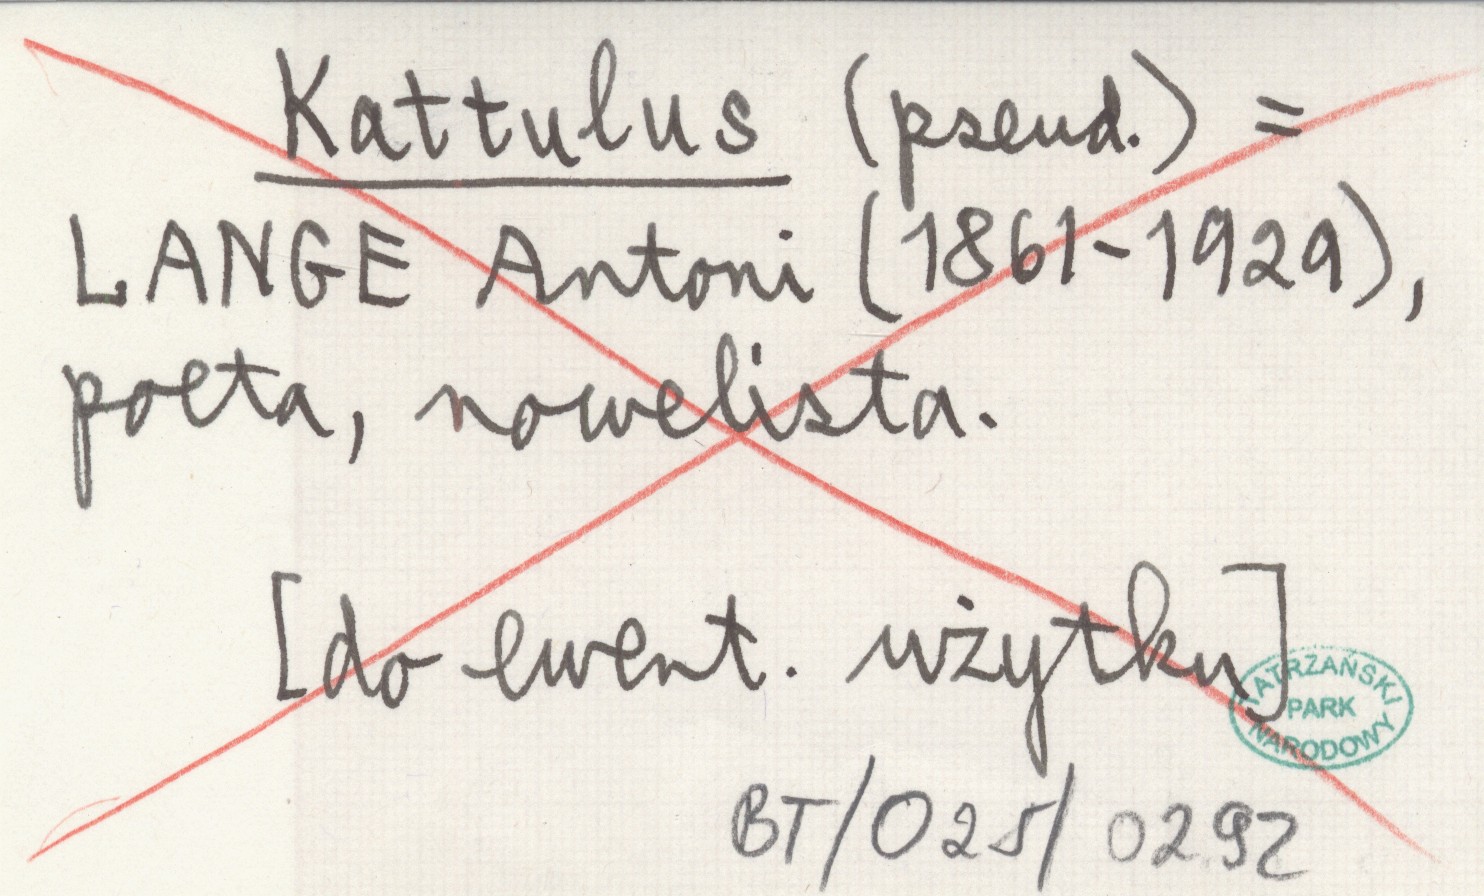 Kattulus (pseud.) =
LANGE Antoni (1861-1929),
poeta, nowelista.
[do ewent. użytku]
TATRZAŃSKI
PARK
NARODOWY
BT/025/0292